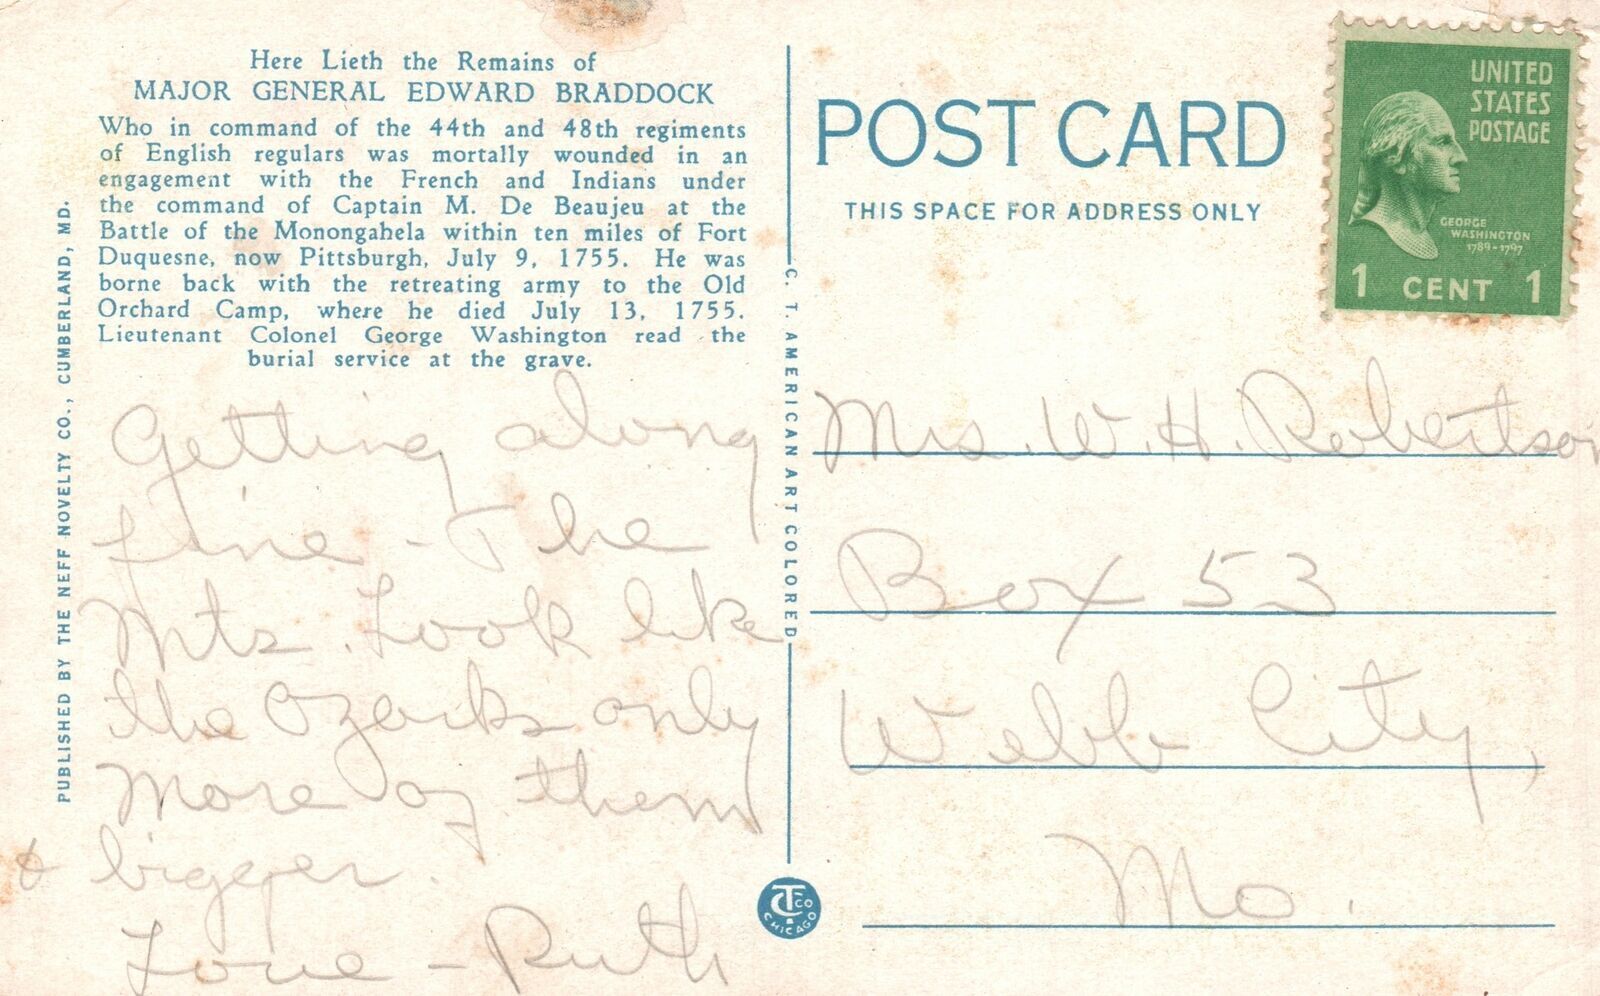 Here Lieth the Remains of
MAJOR GENERAL EDWARD BRADDOCK
Who in command of the 44th and 48th regiments
of English regulars was mortally wounded in an
engagement with the French and Indians under
the command of Captain M. De Beaujeu at the
Battle of the Monongahela within ten miles of Fort
Duquesne, now Pittsburgh, July 9, 1755. He was
borne back with the retreating army to the Old
Orchard Camp, where he died July 13, 1755.
Lieutenant Colonel George Washington read the
burial service at the grave.
PUBLISHED BY THE NEFF NOVELTY CO., CUMBERLAND, MD.
Getting along
fine - The
Mts. Look like
the Ozarks only
more of them
& bigger.
Love - Ruth
C. T. AMERICAN ART COLORED
CTCO
CHICAGO
POST CARD
THIS SPACE FOR ADDRESS ONLY
UNITED
STATES
POSTAGE
GEORGE
WASHINGTON
1789-1797
1 CENT 1
Mrs. W. H. Robertson
Box 53
Webb City,
Mo.